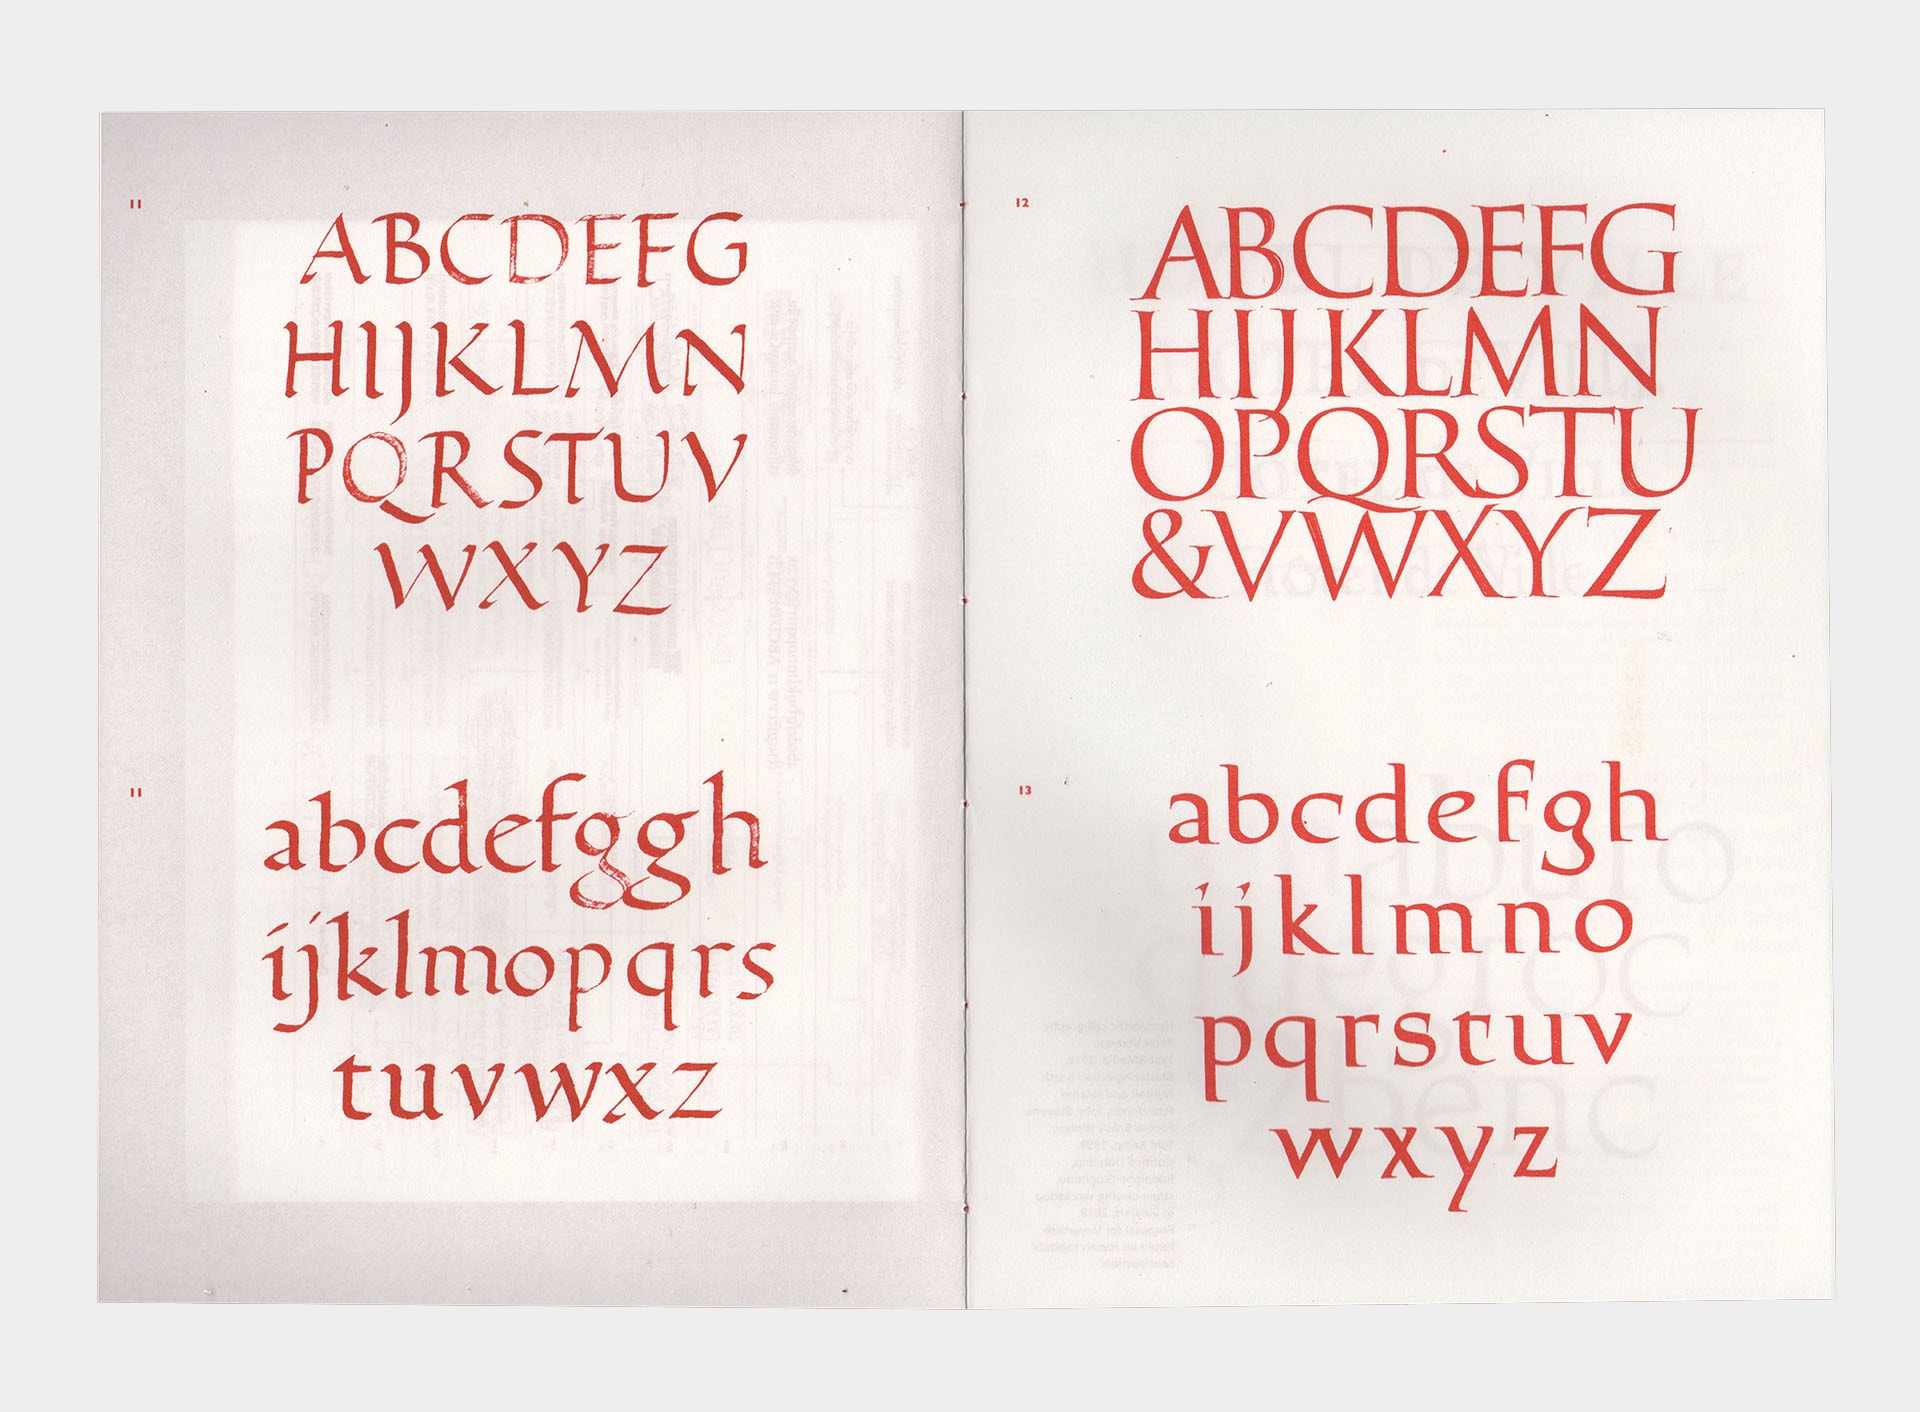 11
ABCDEFG
HIJKLMN
PQRSTUV
WXYZ
11
abcdefggh
ijklmopqrs
tuvwxz
12
ABCDEFG
HIJKLMN
OPQRSTU
&VWXYZ
13
abcdefgh
ijklmno
pqrstuv
wxyz